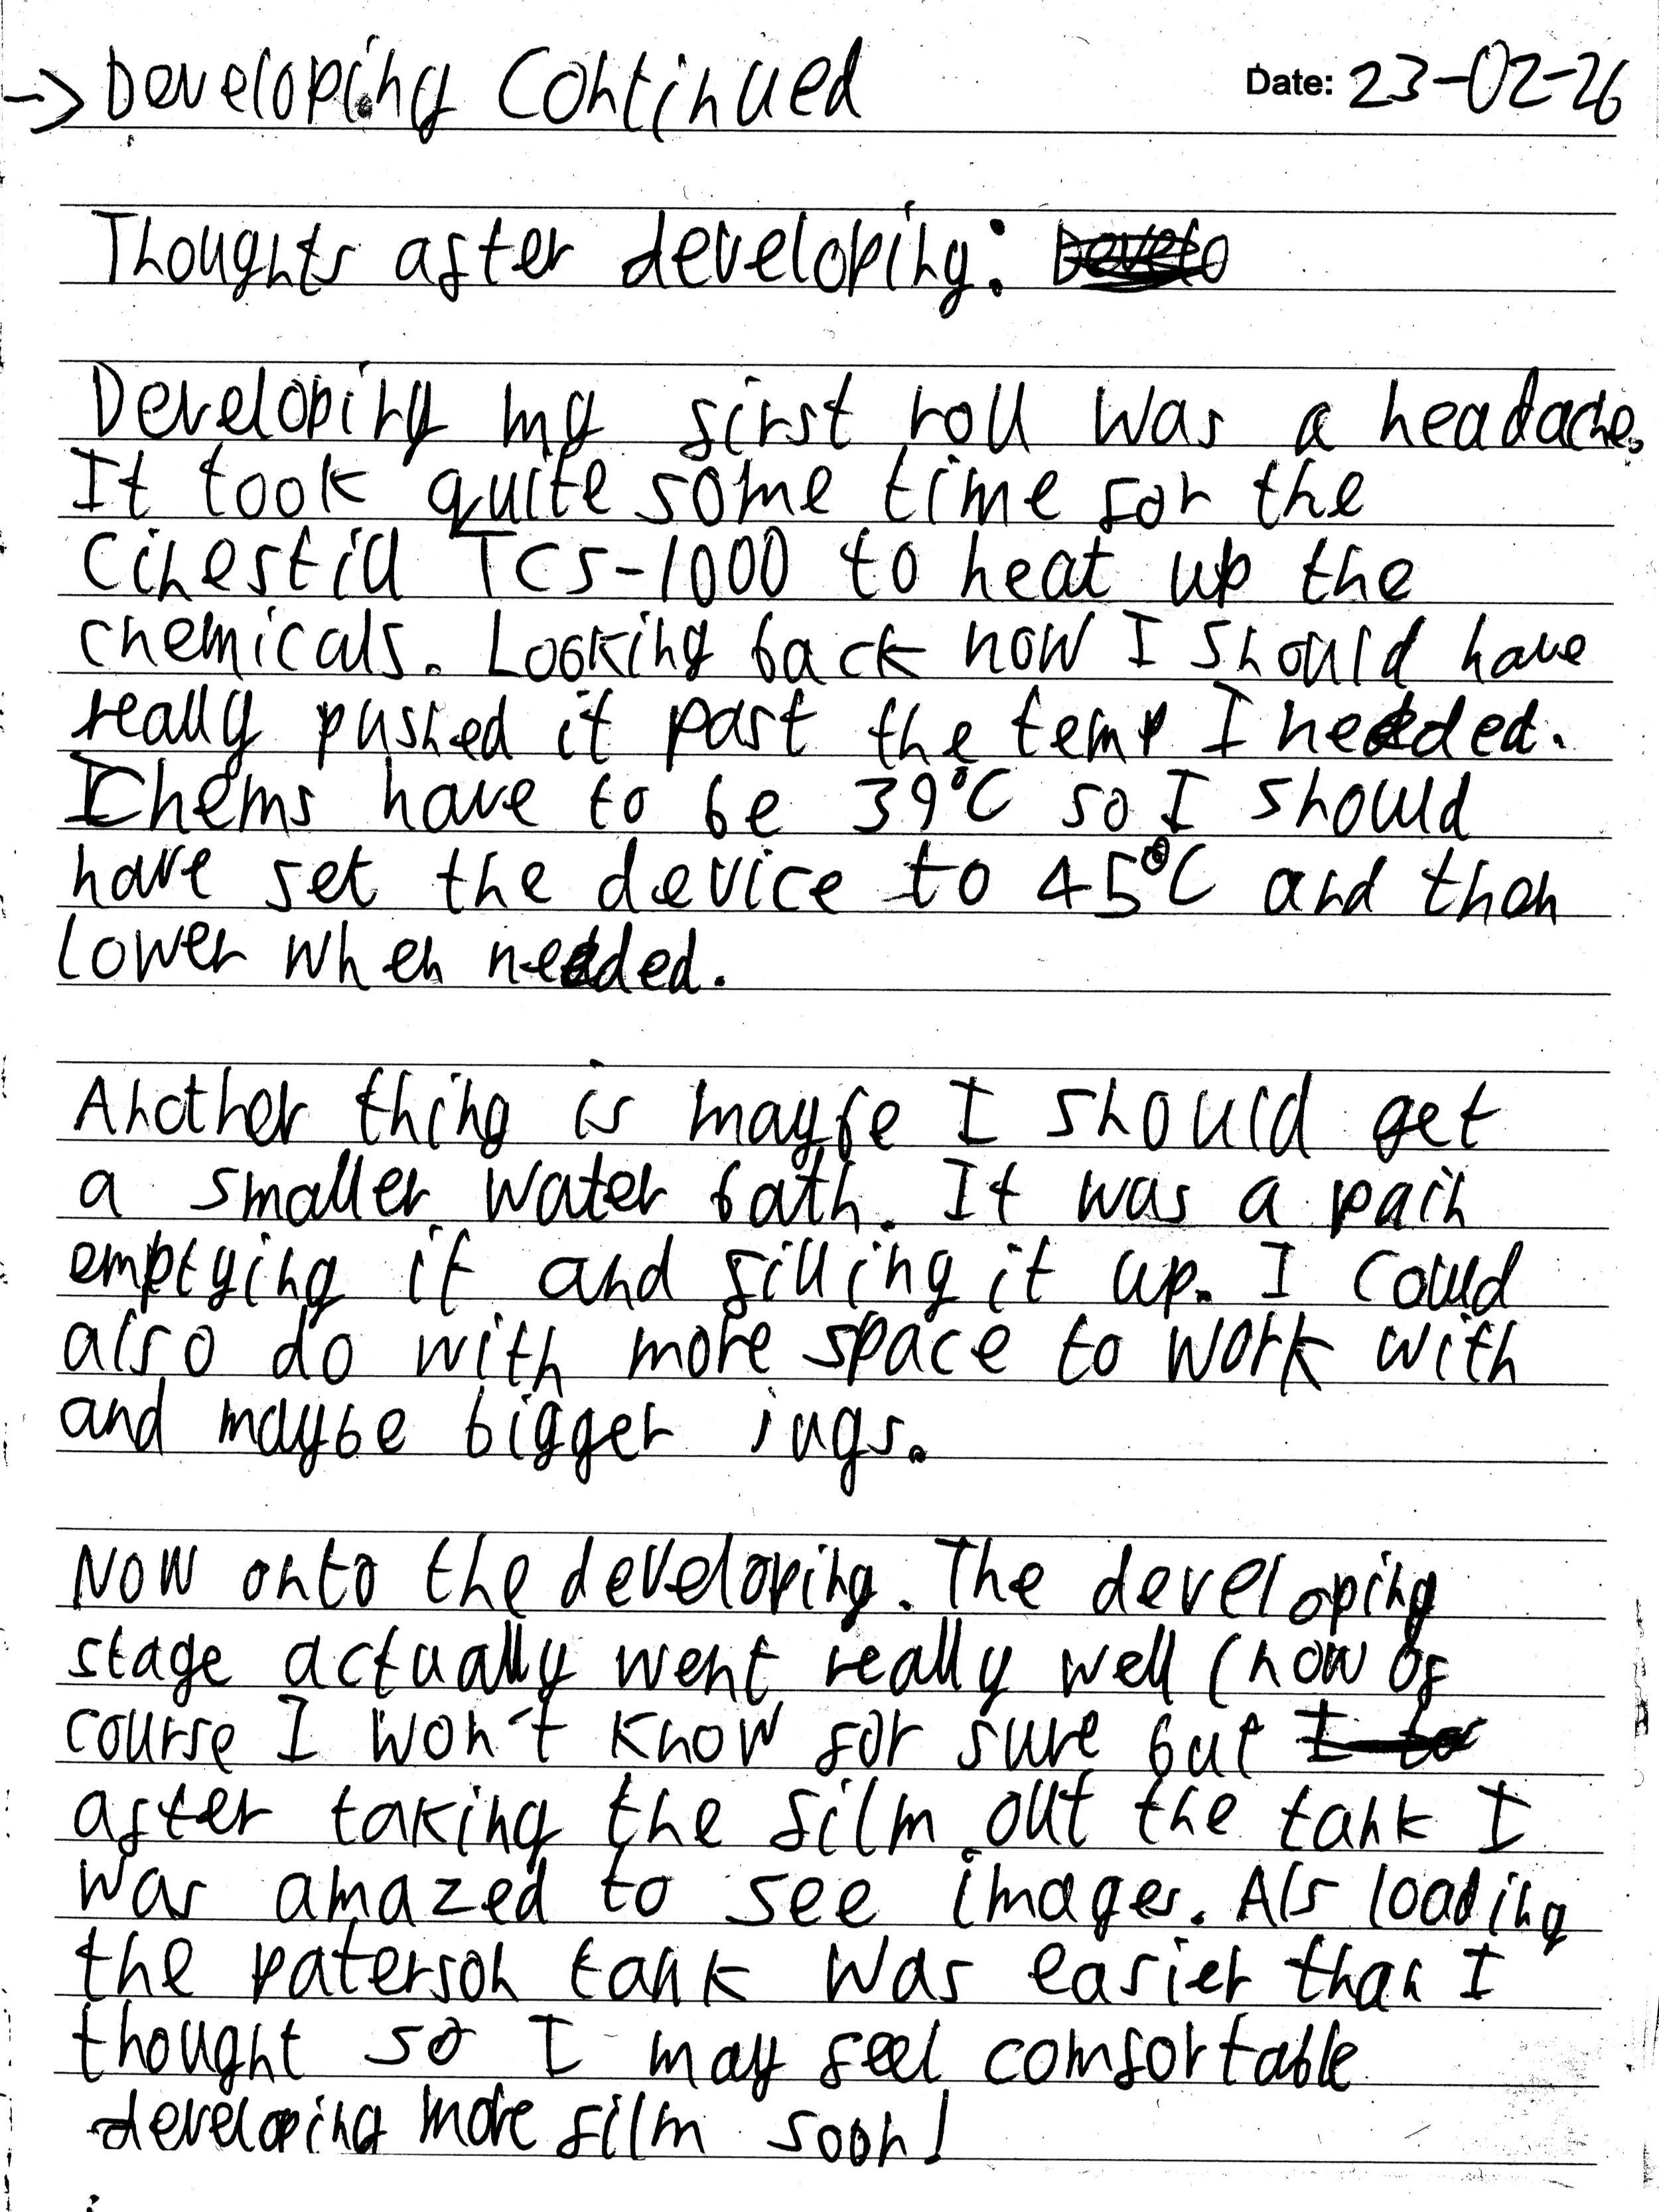 -> Developing Continued
Date: 23-02-26
Thoughts after developing: Develo
Developing my first roll was a headache.
It took quite some time for the
Cinestill TCS-1000 to heat up the
chemicals. Looking back now I should have
really pushed it past the temp I needed.
Chems have to be 39°C so I should
have set the device to 45°C and then
lower when needed.
Another thing is maybe I should get
a smaller water bath. It was a pain
emptying it and filling it up. I could
also do with more space to work with
and maybe bigger jugs.
Now onto the developing. The developing
stage actually went really well (now of
course I won't know for sure but I to
after taking the film out the tank I
was amazed to see images. Als loading
the paterson tank was easier than I
thought so I may feel comfortable
developing more film soon!